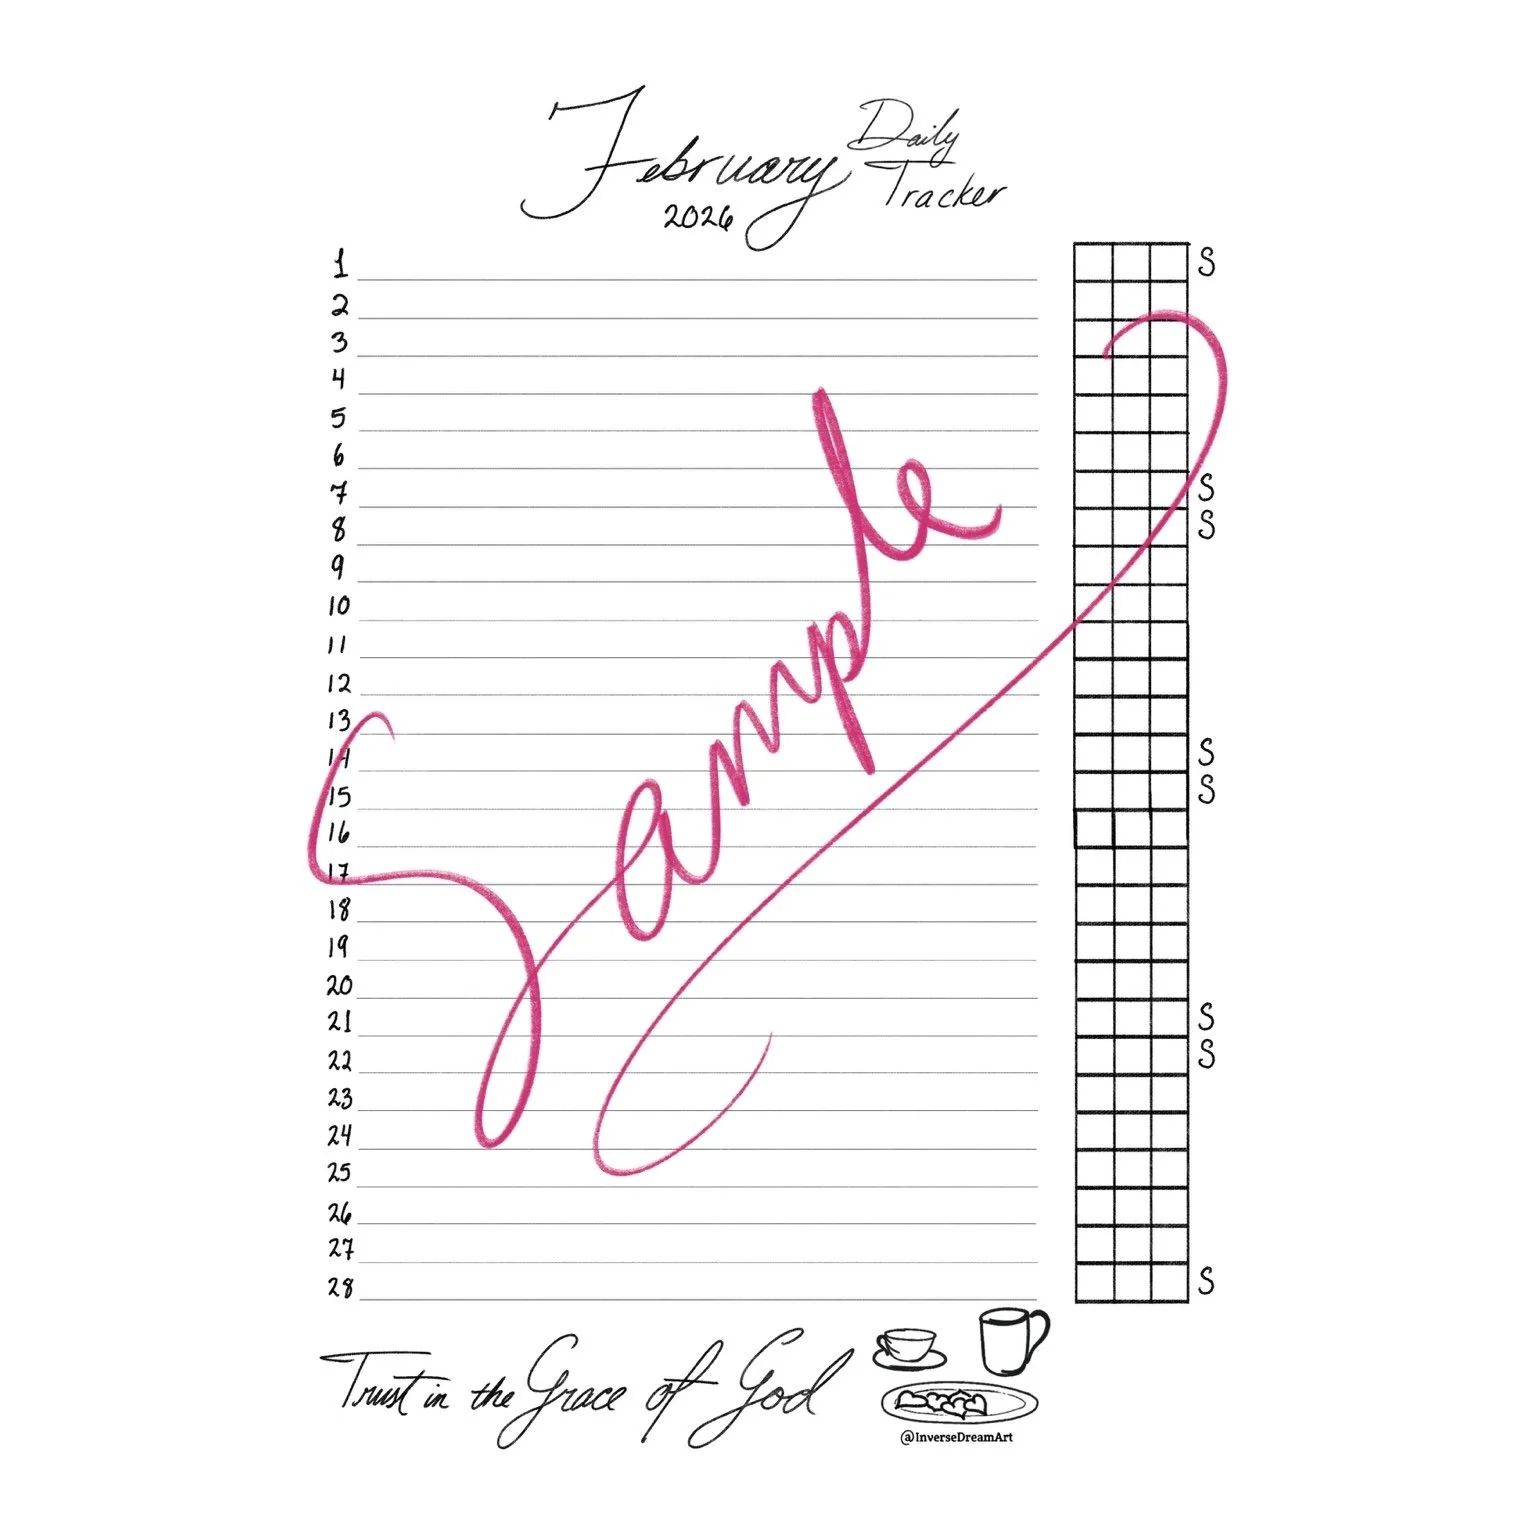 February Daily
Tracker
2026
1 S
2
3
4
5
6
7 S
8 S
9
10
11
12
13
14 S
15 S
16
17
18
19
20
21 S
22 S
23
24
25
26
27
28 S
Sample
Trust in the Grace of God
@InverseDreamArt